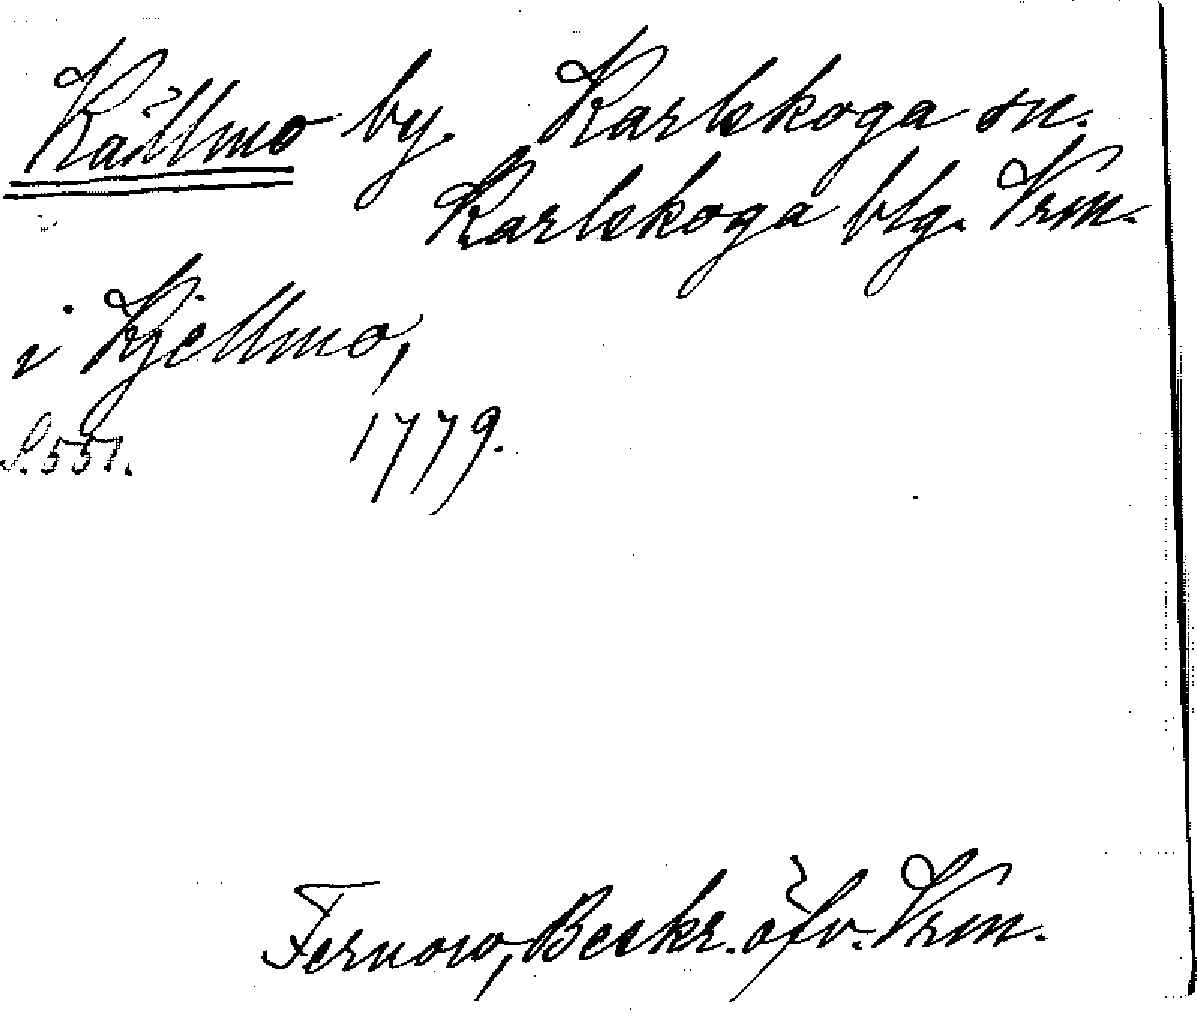 Källmo by. Karlskoga sn.
Karlskoga blg. Vrm.
i Kjellmo,
S. 551. 1779.
Fernow, Beskr. öfv. Vrm.